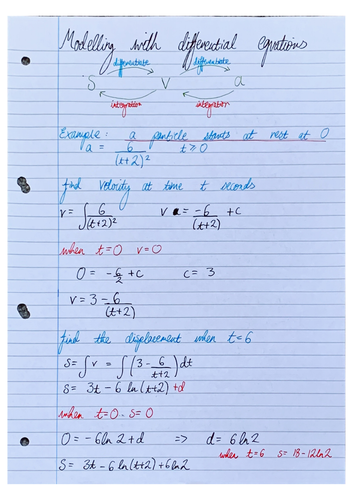 Modelling with differential equations
differentiate differentiate
S V a
integration integration
Example: a particle starts at rest at O
a = 6/(t+2)² t ≥ 0
find velocity at time t seconds
v = ∫ 6/(t+2)² v = -6/(t+2) + c
when t=0 v=0
0 = -6/2 + c c = 3
v = 3 - 6/(t+2)
find the displacement when t=6
S = ∫ v = ∫ (3 - 6/(t+2)) dt
S = 3t - 6 ln(t+2) + d
when t=0 - S=0
0 = -6ln 2 + d => d = 6 ln2
when t=6 s = 18-12ln2
S = 3t - 6 ln(t+2) + 6ln2